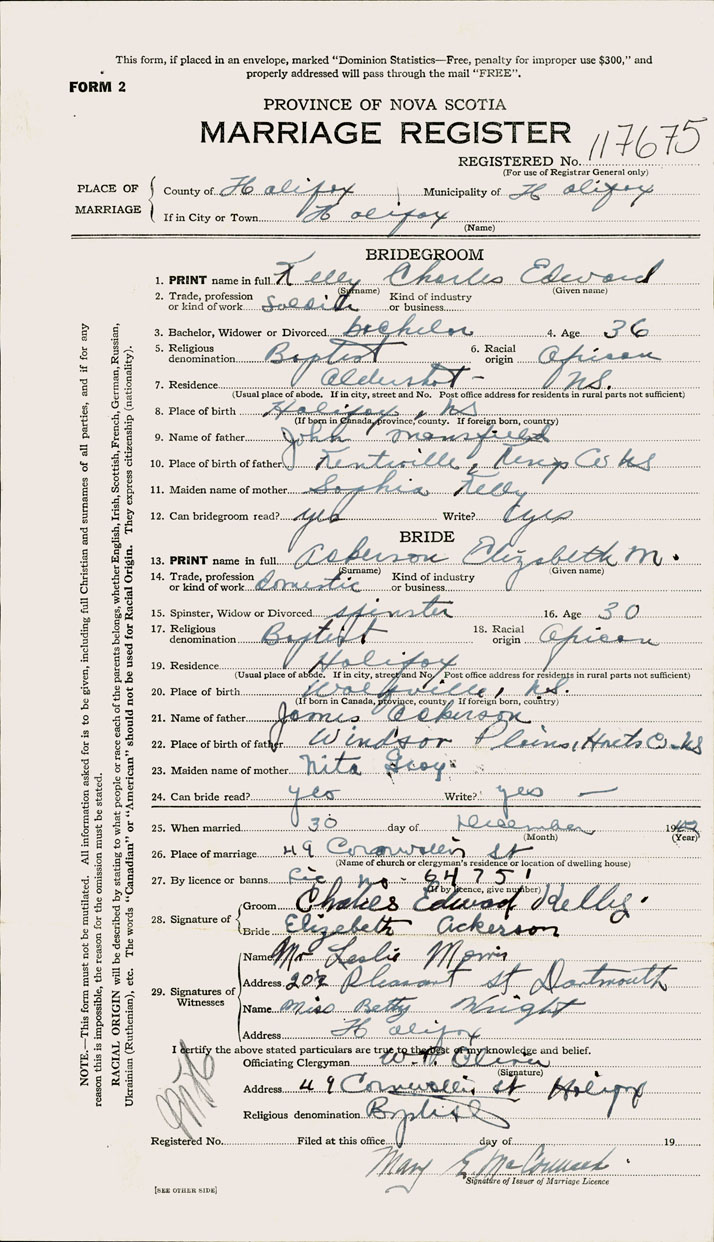 This form, if placed in an envelope, marked "Dominion Statistics—Free, penalty for improper use $300," and
properly addressed will pass through the mail "FREE".
FORM 2
PROVINCE OF NOVA SCOTIA
MARRIAGE REGISTER
REGISTERED No. 117675
(For use of Registrar General only)
PLACE OF MARRIAGE
County of Halifax Municipality of Halifax
If in City or Town Halifax
(Name)
BRIDEGROOM
1. PRINT name in full Kelly Charles Edward
(Surname) (Given name)
2. Trade, profession or kind of work Soldier Kind of industry or business
3. Bachelor, Widower or Divorced bachelor 4. Age 36
5. Religious denomination Baptist 6. Racial origin African
7. Residence Aldershot - NS.
(Usual place of abode. If in city, street and No. Post office address for residents in rural parts not sufficient)
8. Place of birth Halifax, NS
(If born in Canada, province, county. If foreign born, country)
9. Name of father John Mansfield
10. Place of birth of father Kentville, Kings Co NS
11. Maiden name of mother Sophia Kelly
12. Can bridegroom read? yes Write? yes
BRIDE
13. PRINT name in full Ackerson Elizabeth M.
(Surname) (Given name)
14. Trade, profession or kind of work Domestic Kind of industry or business
15. Spinster, Widow or Divorced spinster 16. Age 30
17. Religious denomination Baptist 18. Racial origin African
19. Residence Halifax
(Usual place of abode. If in city, street and No. Post office address for residents in rural parts not sufficient)
20. Place of birth Wolfville, NS.
(If born in Canada, province, county. If foreign born, country)
21. Name of father James Ackerson
22. Place of birth of father Windsor Plains, Hants Co. NS
23. Maiden name of mother Nita Gray
24. Can bride read? yes Write? yes —
25. When married 30 day of December 19
(Month) (Year)
26. Place of marriage 49 Cornwallis St
(Name of church or clergyman's residence or location of dwelling house)
27. By licence or banns Lic no - 64751
(If by licence, give number)
28. Signature of
Groom Charles Edward Kelly.
Bride Elizabeth Ackerson
29. Signatures of Witnesses
Name Mr Leslie Morris
Address 202 Pleasant St Dartmouth
Name Miss Betty Wright
Address Halifax
I certify the above stated particulars are true to the best of my knowledge and belief.
Officiating Clergyman W. P. Oliver
(Signature)
Address 49 Cornwallis St Halifax
Religious denomination Baptist
Registered No. Filed at this office day of 19
Mary E. McCormack
Signature of Issuer of Marriage Licence
[SEE OTHER SIDE]
NOTE.—This form must not be mutilated. All information asked for is to be given, including full Christian and surnames of all parties, and if for any
reason this is impossible, the reason for the omission must be stated.
RACIAL ORIGIN will be described by stating to what people or race each of the parents belongs, whether English, Irish, Scottish, French, German, Russian,
Ukrainian (Ruthenian), etc. The words "Canadian" or "American" should not be used for Racial Origin. They express citizenship (nationality).